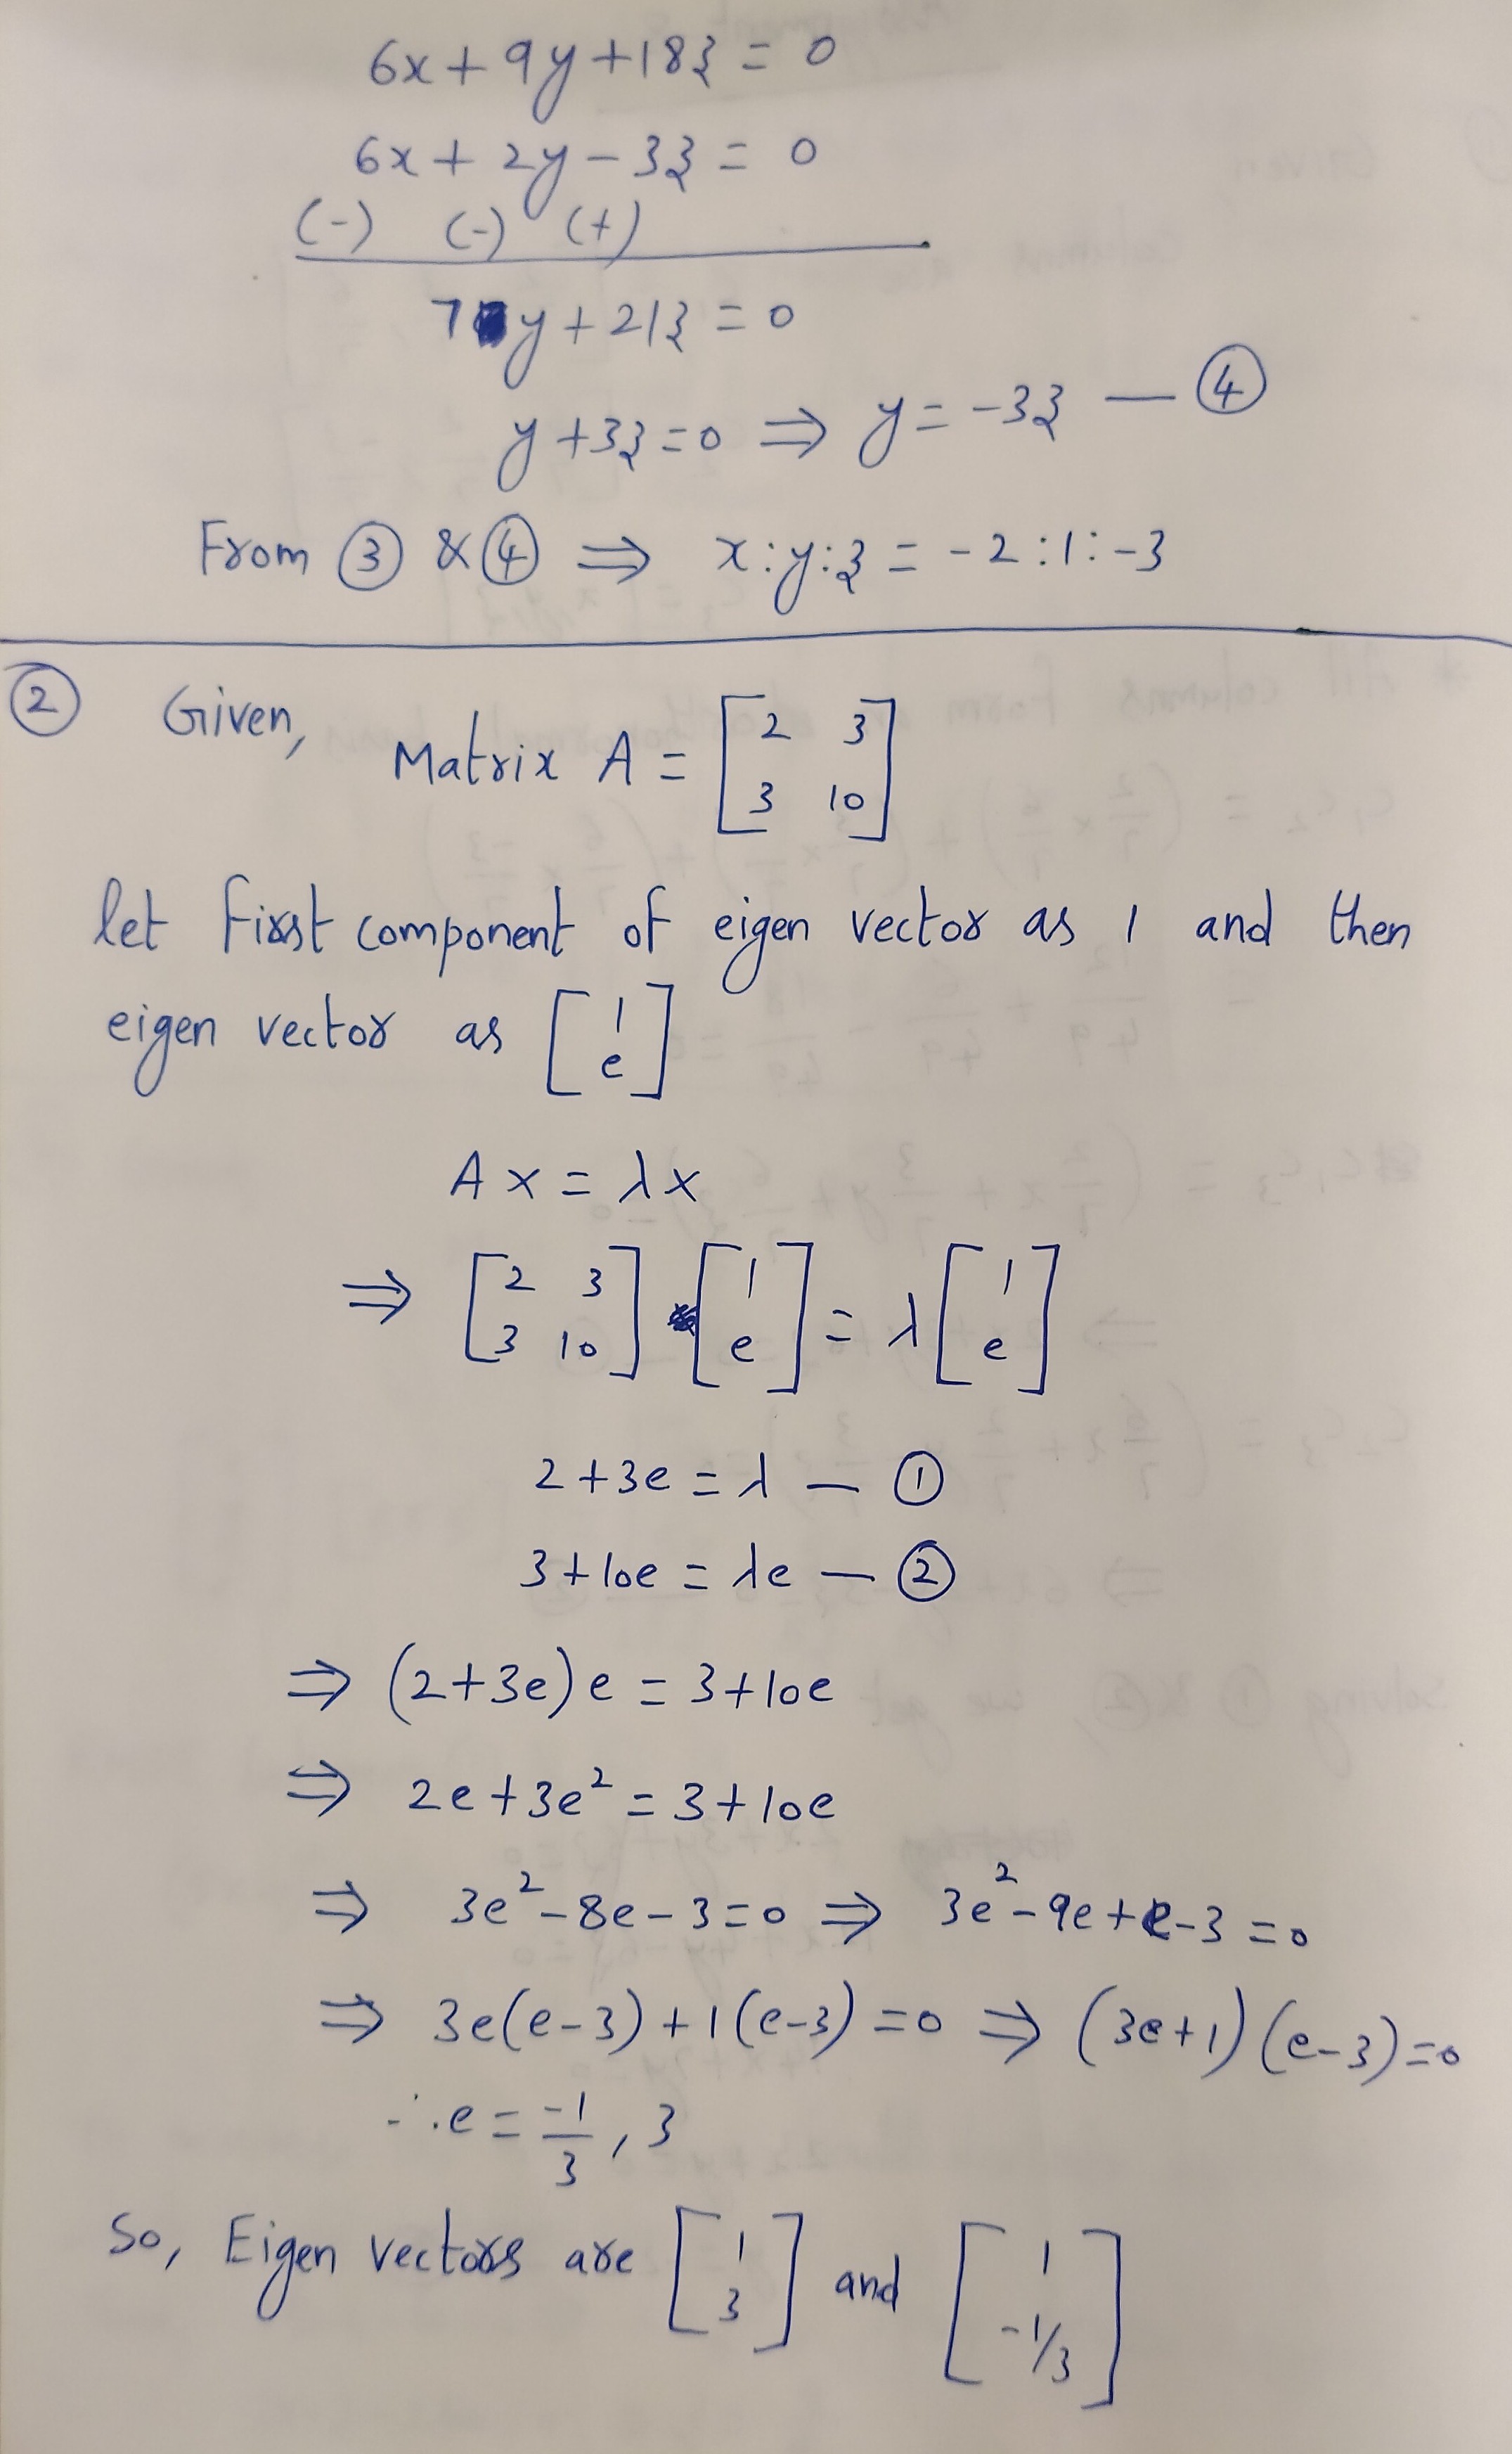 6x + 9y + 18z = 0
6x + 2y - 3z = 0
(-) (-) (+)
7y + 21z = 0
y + 3z = 0 ⇒ y = -3z — ④
From ③ & ④ ⇒ x : y : z = -2 : 1 : -3
② Given,
Matrix A = [2 3
3 10]
let first component of eigen vector as 1 and then
eigen vector as [1
e]
A x = λ x
⇒ [2 3 [1 = λ [1
3 10] e] e]
2 + 3e = λ — ①
3 + 10e = λe — ②
⇒ (2 + 3e) e = 3 + 10e
⇒ 2e + 3e² = 3 + 10e
⇒ 3e² - 8e - 3 = 0 ⇒ 3e² - 9e + e - 3 = 0
⇒ 3e(e-3) + 1(e-3) = 0 ⇒ (3e+1)(e-3) = 0
∴ e = -1/3, 3
So, Eigen vectors are [1 and [1
3] -1/3]